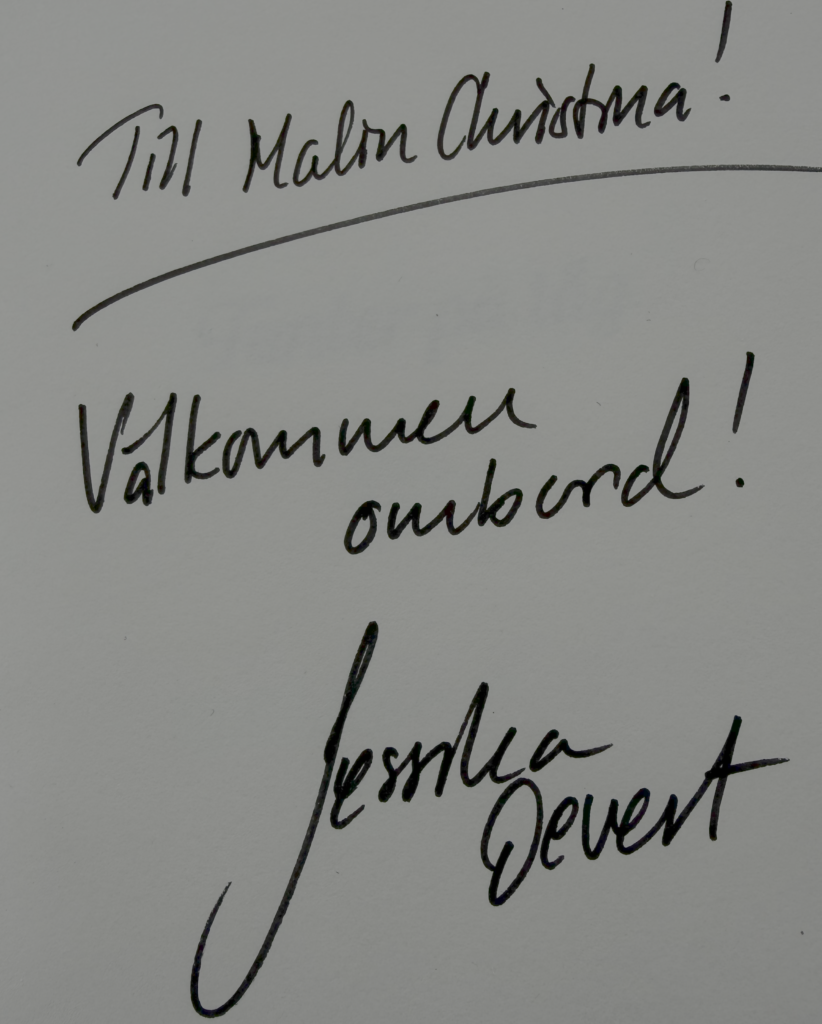 Till Malin Christina!
Välkommen
ombord!
Jessika
Devert